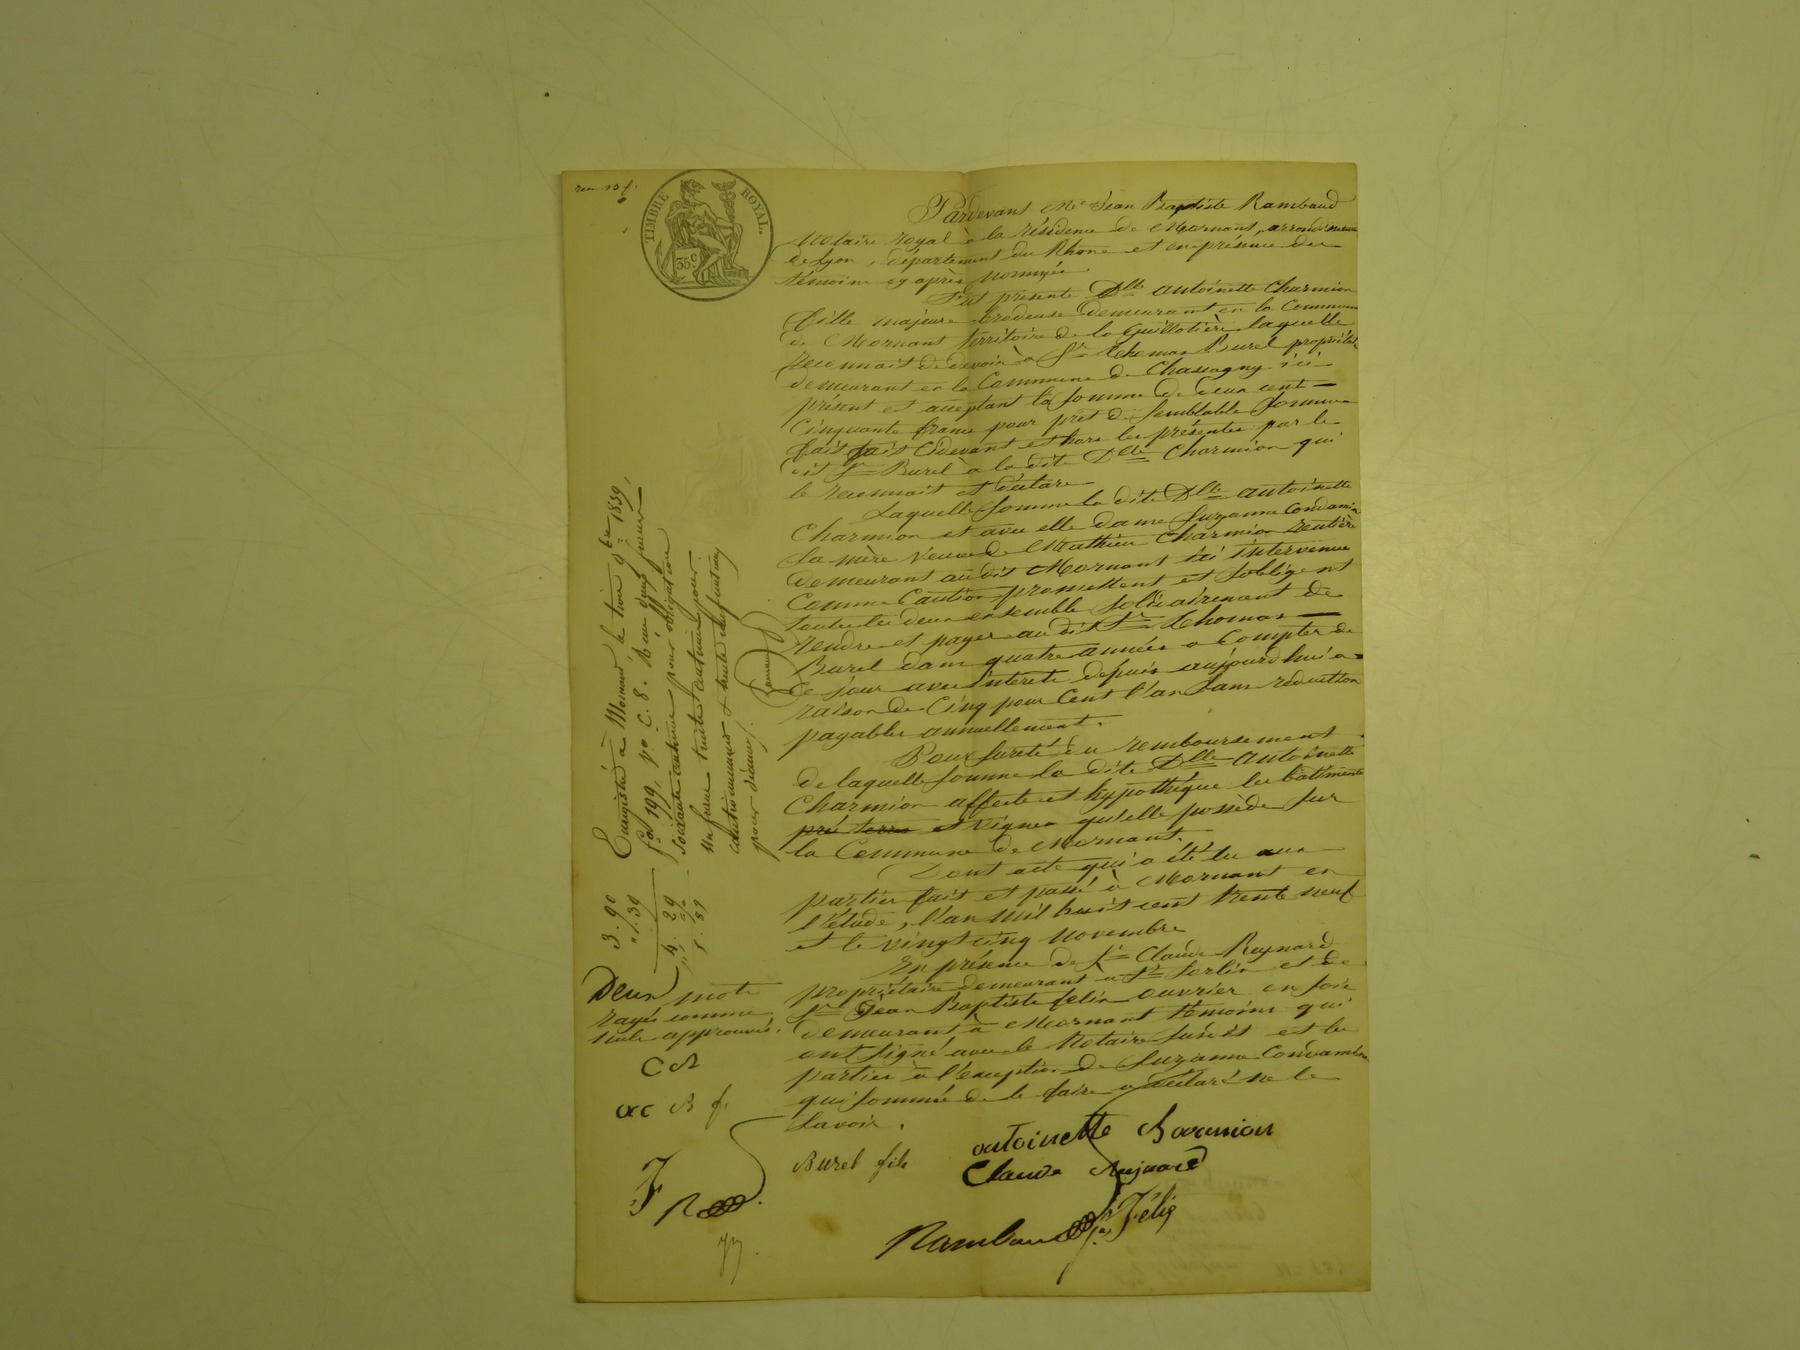 TIMBRE ROYAL.
35 c
Pardevant Me Jean Baptiste Rambaud
Notaire royal à la résidence de Mornant, arrondissement
de Lyon, département du Rhône et en présence des
témoins cy après nommés.
Fut présente Dlle antoinette Charmion
fille majeure brodeuse demeurant en la Commune
de Mornant territoire de la Guillotière laquelle
reconnait de devoir à Sr Thomas Burel propriétre
demeurant en la Commune de Chassagny ici
présent et acceptant la somme de deux cent
Cinquante francs pour prêt de semblable somme
fait fait Cidevant et hors les présentes par le
dit Sr Burel à la dite Dlle Charmion qui
le reconnait et déclare
Laquelle somme la dite Dlle antoinette
Charmion et avec elle dame Suzanne Condamin
sa mère veuve de Mathieu Charmion rentière
demeurant audit Mornant ici intervenue
comme Caution promettent et s'obligent
toutes les deux ensemble solidairement de
rendre et payer au dit Sr Thomas
Burel dans quatre années a Compter de
ce jour avec intérêts depuis aujourd'hui a
raison de Cinq pour Cent l'an sans réduction
payables annuellement.
Pour sureté du remboursement
de laquelle somme la dite Dlle Antoinette
Charmion affecte et hypothéque les bâtiments
pré terres et vignes qu'elle possède sur
la Commune de Mornant.
Dont acte qui a été lu aux
parties fait et passé à Mornant en
l'étude, l'an mil huit cent trente neuf
et le vingt cinq novembre
En présence de Sr Claude Reynard
propriétaire demeurant a St Sorlin et de
Sr Jean Baptiste felix ouvrier en soie
demeurant à Mornant témoins qui
ont signé avec le Notaire susdit et les
parties à l'exception de Suzanne Condamin
qui sommée de le faire a déclaré ne le
savoir.
Enregistré à Mornant le trois 9bre 1839,
fo 199, vo C. 8. Reçu deux francs
soixante centimes pour obligation
un franc trente centimes pour
cautionnement & trente neuf centimes
pour décime/.
Rambaud
3. 90
" . 39
4. 29
Deux mots
rayés comme
nuls approuvés.
C R
ac B f
F
R
Burel fils
antoinette Charmion
Claude Reynard
Rambaud
Félix